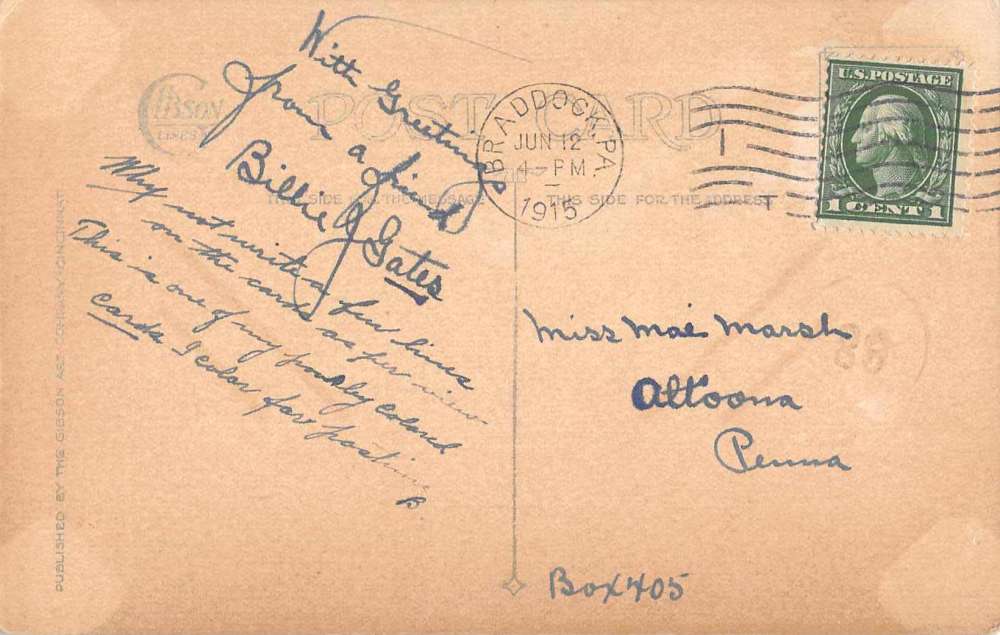 With Greetings
from a friend
Billie J Gates
Why not write a few lines
on the cards as per view
This is one of my poorley colord
cards I color for pastime
B
GIBSON
LINES
POST CARD
THIS SIDE FOR THE MESSAGE
THIS SIDE FOR THE ADDRESS
PUBLISHED BY THE GIBSON ART COMPANY, CINCINNATI
BRADDOCK, PA.
JUN 12
4-PM
1915
U.S. POSTAGE
1 CENT 1
Miss Mae Marsh
Altoona
Penna
Box 405